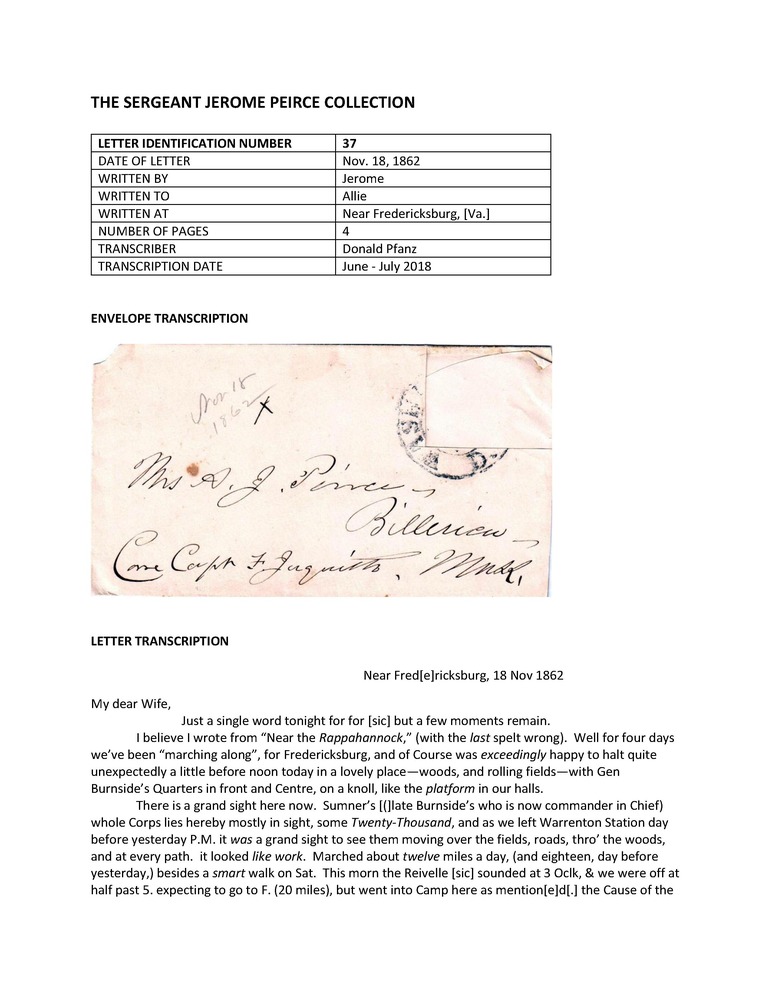 THE SERGEANT JEROME PEIRCE COLLECTION
LETTER IDENTIFICATION NUMBER 37
DATE OF LETTER Nov. 18, 1862
WRITTEN BY Jerome
WRITTEN TO Allie
WRITTEN AT Near Fredericksburg, [Va.]
NUMBER OF PAGES 4
TRANSCRIBER Donald Pfanz
TRANSCRIPTION DATE June - July 2018
ENVELOPE TRANSCRIPTION
Nov 18
1862
X
Mrs A. J. Peirce
Billerica
Care Capt F. Jaquith, Mass.
LETTER TRANSCRIPTION
Near Fred[e]ricksburg, 18 Nov 1862
My dear Wife,
Just a single word tonight for for [sic] but a few moments remain.
I believe I wrote from “Near the Rappahannock,” (with the last spelt wrong). Well for four days
we’ve been “marching along”, for Fredericksburg, and of Course was exceedingly happy to halt quite
unexpectedly a little before noon today in a lovely place—woods, and rolling fields—with Gen
Burnside’s Quarters in front and Centre, on a knoll, like the platform in our halls.
There is a grand sight here now. Sumner’s [(]late Burnside’s who is now commander in Chief)
whole Corps lies hereby mostly in sight, some Twenty-Thousand, and as we left Warrenton Station day
before yesterday P.M. it was a grand sight to see them moving over the fields, roads, thro’ the woods,
and at every path. it looked like work. Marched about twelve miles a day, (and eighteen, day before
yesterday,) besides a smart walk on Sat. This morn the Reivelle [sic] sounded at 3 Oclk, & we were off at
half past 5. expecting to go to F. (20 miles), but went into Camp here as mention[e]d[.] the Cause of the